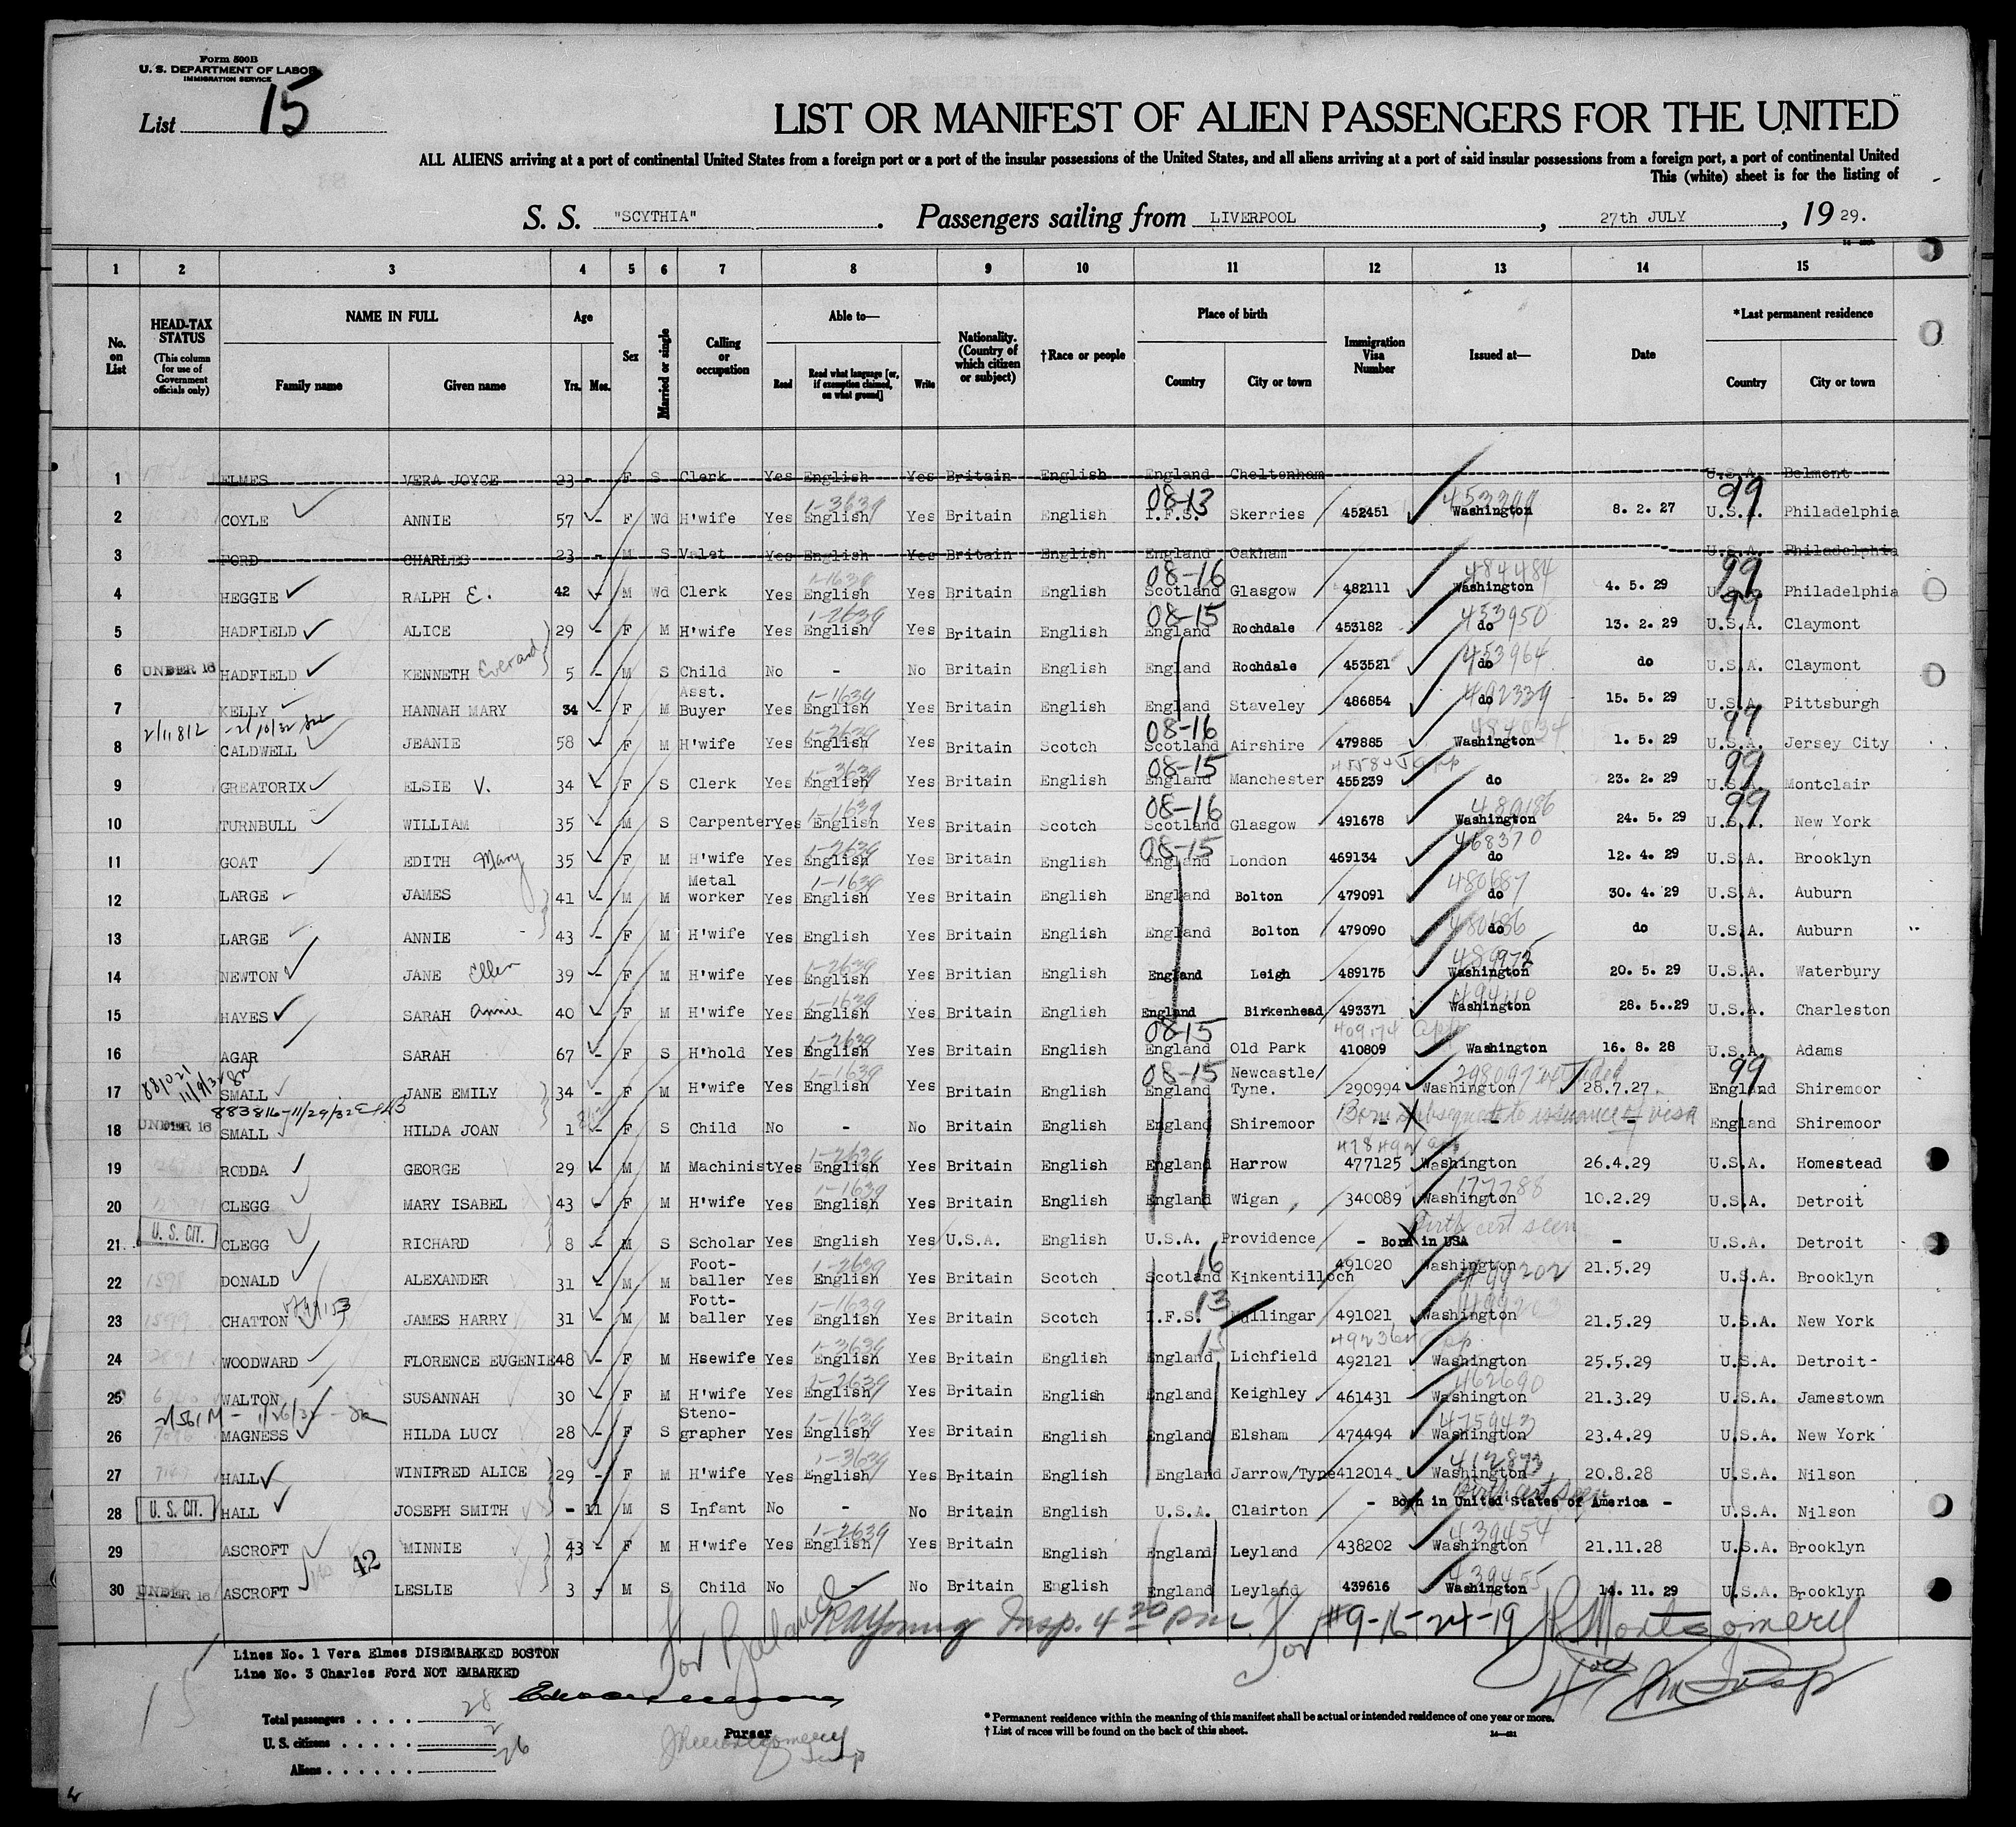 Form 500B
U. S. DEPARTMENT OF LABOR
IMMIGRATION SERVICE
List 15
LIST OR MANIFEST OF ALIEN PASSENGERS FOR THE UNITED
ALL ALIENS arriving at a port of continental United States from a foreign port or a port of the insular possessions of the United States, and all aliens arriving at a port of said insular possessions from a foreign port, a port of continental United
This (white) sheet is for the listing of
S. S. "SCYTHIA". Passengers sailing from LIVERPOOL, 27th JULY, 19 29.
1 2 3 4 5 6 7 8 9 10 11 12 13 14 15
No. on List HEAD-TAX STATUS (This column for use of Government officials only) NAME IN FULL Family name Given name Age Yrs. Mos. Sex Married or single Calling or occupation Able to— Read Read what language [or, if exemption claimed, on what ground] Write Nationality. (Country of which citizen or subject) †Race or people Place of birth Country City or town Immigration Visa Number Issued at— Date *Last permanent residence Country City or town
1 ELMES VERA JOYCE 23 - F S Clerk Yes English Yes Britain English England Cheltenham U.S.A. Belmont
2 COYLE ANNIE 57 - F Wd H'wife Yes 1-3639 English Yes Britain English 08-13 I.F.S. Skerries 452451 453399 Washington 8. 2. 27 99 U.S.A. Philadelphia
3 FORD CHARLES 23 - M S Valet Yes English Yes Britain English England Oakham U.S.A. Philadelphia
4 HEGGIE RALPH E. 42 - M Wd Clerk Yes 1-1639 English Yes Britain English 08-16 Scotland Glasgow 482111 484484 Washington 4. 5. 29 99 U.S.A. Philadelphia
5 HADFIELD ALICE 29 - F M H'wife Yes 1-2639 English Yes Britain English 08-15 England Rochdale 453182 453950 do 13. 2. 29 99 U.S.A. Claymont
6 UNDER 16 HADFIELD KENNETH Everard 5 - M S Child No - No Britain English England Rochdale 453521 453964 do do U.S.A. Claymont
7 KELLY HANNAH MARY 34 - F M Asst. Buyer Yes 1-1639 English Yes Britain English England Staveley 486854 492339 do 15. 5. 29 U.S.A. Pittsburgh
8 CALDWELL JEANIE 58 - F M H'wife Yes 1-2639 English Yes Britain Scotch 08-16 Scotland Airshire 479885 484034 Washington 1. 5. 29 99 U.S.A. Jersey City
9 GREATORIX ELSIE V. 34 - F S Clerk Yes 1-3639 English Yes Britain English 08-15 England Manchester 455239 do 23. 2. 29 99 U.S.A. Montclair
10 TURNBULL WILLIAM 35 - M S Carpenter Yes 1-1639 English Yes Britain Scotch 08-16 Scotland Glasgow 491678 489186 Washington 24. 5. 29 99 U.S.A. New York
11 GOAT EDITH Mary 35 - F M H'wife Yes 1-2639 English Yes Britain English 08-15 England London 469134 468370 do 12. 4. 29 U.S.A. Brooklyn
12 LARGE JAMES 41 - M M Metal worker Yes 1-1639 English Yes Britain English England Bolton 479091 480687 do 30. 4. 29 U.S.A. Auburn
13 LARGE ANNIE 43 - F M H'wife Yes English Yes Britain English England Bolton 479090 480686 do do U.S.A. Auburn
14 NEWTON JANE Ellen 39 - F M H'wife Yes 1-2639 English Yes Britian English England Leigh 489175 489972 Washington 20. 5. 29 U.S.A. Waterbury
15 HAYES SARAH Annie 40 - F M H'wife Yes 1-1639 English Yes Britain English England Birkenhead 493371 Washington 28. 5..29 U.S.A. Charleston
16 AGAR SARAH 67 - F S H'hold Yes 1-2639 English Yes Britain English 08-15 England Old Park 410809 409174 app Washington 16. 8. 28 U.S.A. Adams
17 SMALL JANE EMILY 34 - F M H'wife Yes 1-1639 English Yes Britain English 08-15 England Newcastle/ Tyne. 290994 Washington 28.7.27. 99 England Shiremoor
883816-11/29/32
18 UNDER 16 SMALL HILDA JOAN 1 - F S Child No - No Britain English England Shiremoor Born subsequent to issuance of visa - - - England Shiremoor
19 RODDA GEORGE 29 - M M Machinist Yes 1-2639 English Yes Britain English England Harrow 477125 Washington 26.4.29 U.S.A. Homestead
20 CLEGG MARY ISABEL 43 - F M H'wife Yes 1-1639 English Yes Britain English England Wigan 340089 177788 Washington 10.2.29 U.S.A. Detroit
21 U. S. CIT. CLEGG RICHARD 8 - M S Scholar Yes English Yes U.S.A. English U.S.A. Providence - Birth cert seen Born in USA - U.S.A. Detroit
22 DONALD ALEXANDER 31 - M M Foot- baller Yes 1-2639 English Yes Britain Scotch 16 Scotland Kinkentilloch 491020 Washington 499202 21.5.29 U.S.A. Brooklyn
23 CHATTON JAMES HARRY 31 - M M Fott- baller Yes 1-1639 English Yes Britain Scotch 13 I.F.S. Mullingar 491021 Washington 21.5.29 U.S.A. New York
24 WOODWARD FLORENCE EUGENIE 48 - F M Hsewife Yes 1-3639 English Yes Britain English 15 England Lichfield 492121 Washington 25.5.29 U.S.A. Detroit-
25 WALTON SUSANNAH 30 - F M H'wife Yes 1-2639 English Yes Britain English England Keighley 461431 462690 Washington 21.3.29 U.S.A. Jamestown
26 MAGNESS HILDA LUCY 28 - F S Steno- grapher Yes 1-1639 English Yes Britain English England Elsham 474494 475943 Washington 23.4.29 U.S.A. New York
27 HALL WINIFRED ALICE 29 - F M H'wife Yes 1-3639 English Yes Britain English England Jarrow/Tyne 412014 412873 Washington 20.8.28 U.S.A. Nilson
28 U. S. CIT. HALL JOSEPH SMITH - 11 M S Infant No - No Britain English U.S.A. Clairton Birth cert seen - Born in United States of America - U.S.A. Nilson
29 ASCROFT MINNIE 43 - F M H'wife Yes 1-2639 English Yes Britain English England Leyland 438202 439454 Washington 21.11.28 U.S.A. Brooklyn
42
30 UNDER 16 ASCROFT LESLIE 3 - M S Child No - No Britain English England Leyland 439616 439455 Washington 14. 11. 29 U.S.A. Brooklyn
For Balance RA Young Insp. 4 20 pm. For #9-16-24-19 JR Montgomery
Insp
Lines No. 1 Vera Elmes DISEMBARKED BOSTON
Line No. 3 Charles Ford NOT EMBARKED
Total passengers . . . . 28
U. S. citizens . . . . . 2
Aliens . . . . . . 26
Purser
JR Montgomery
Insp
* Permanent residence within the meaning of this manifest shall be actual or intended residence of one year or more.
† List of races will be found on the back of this sheet.